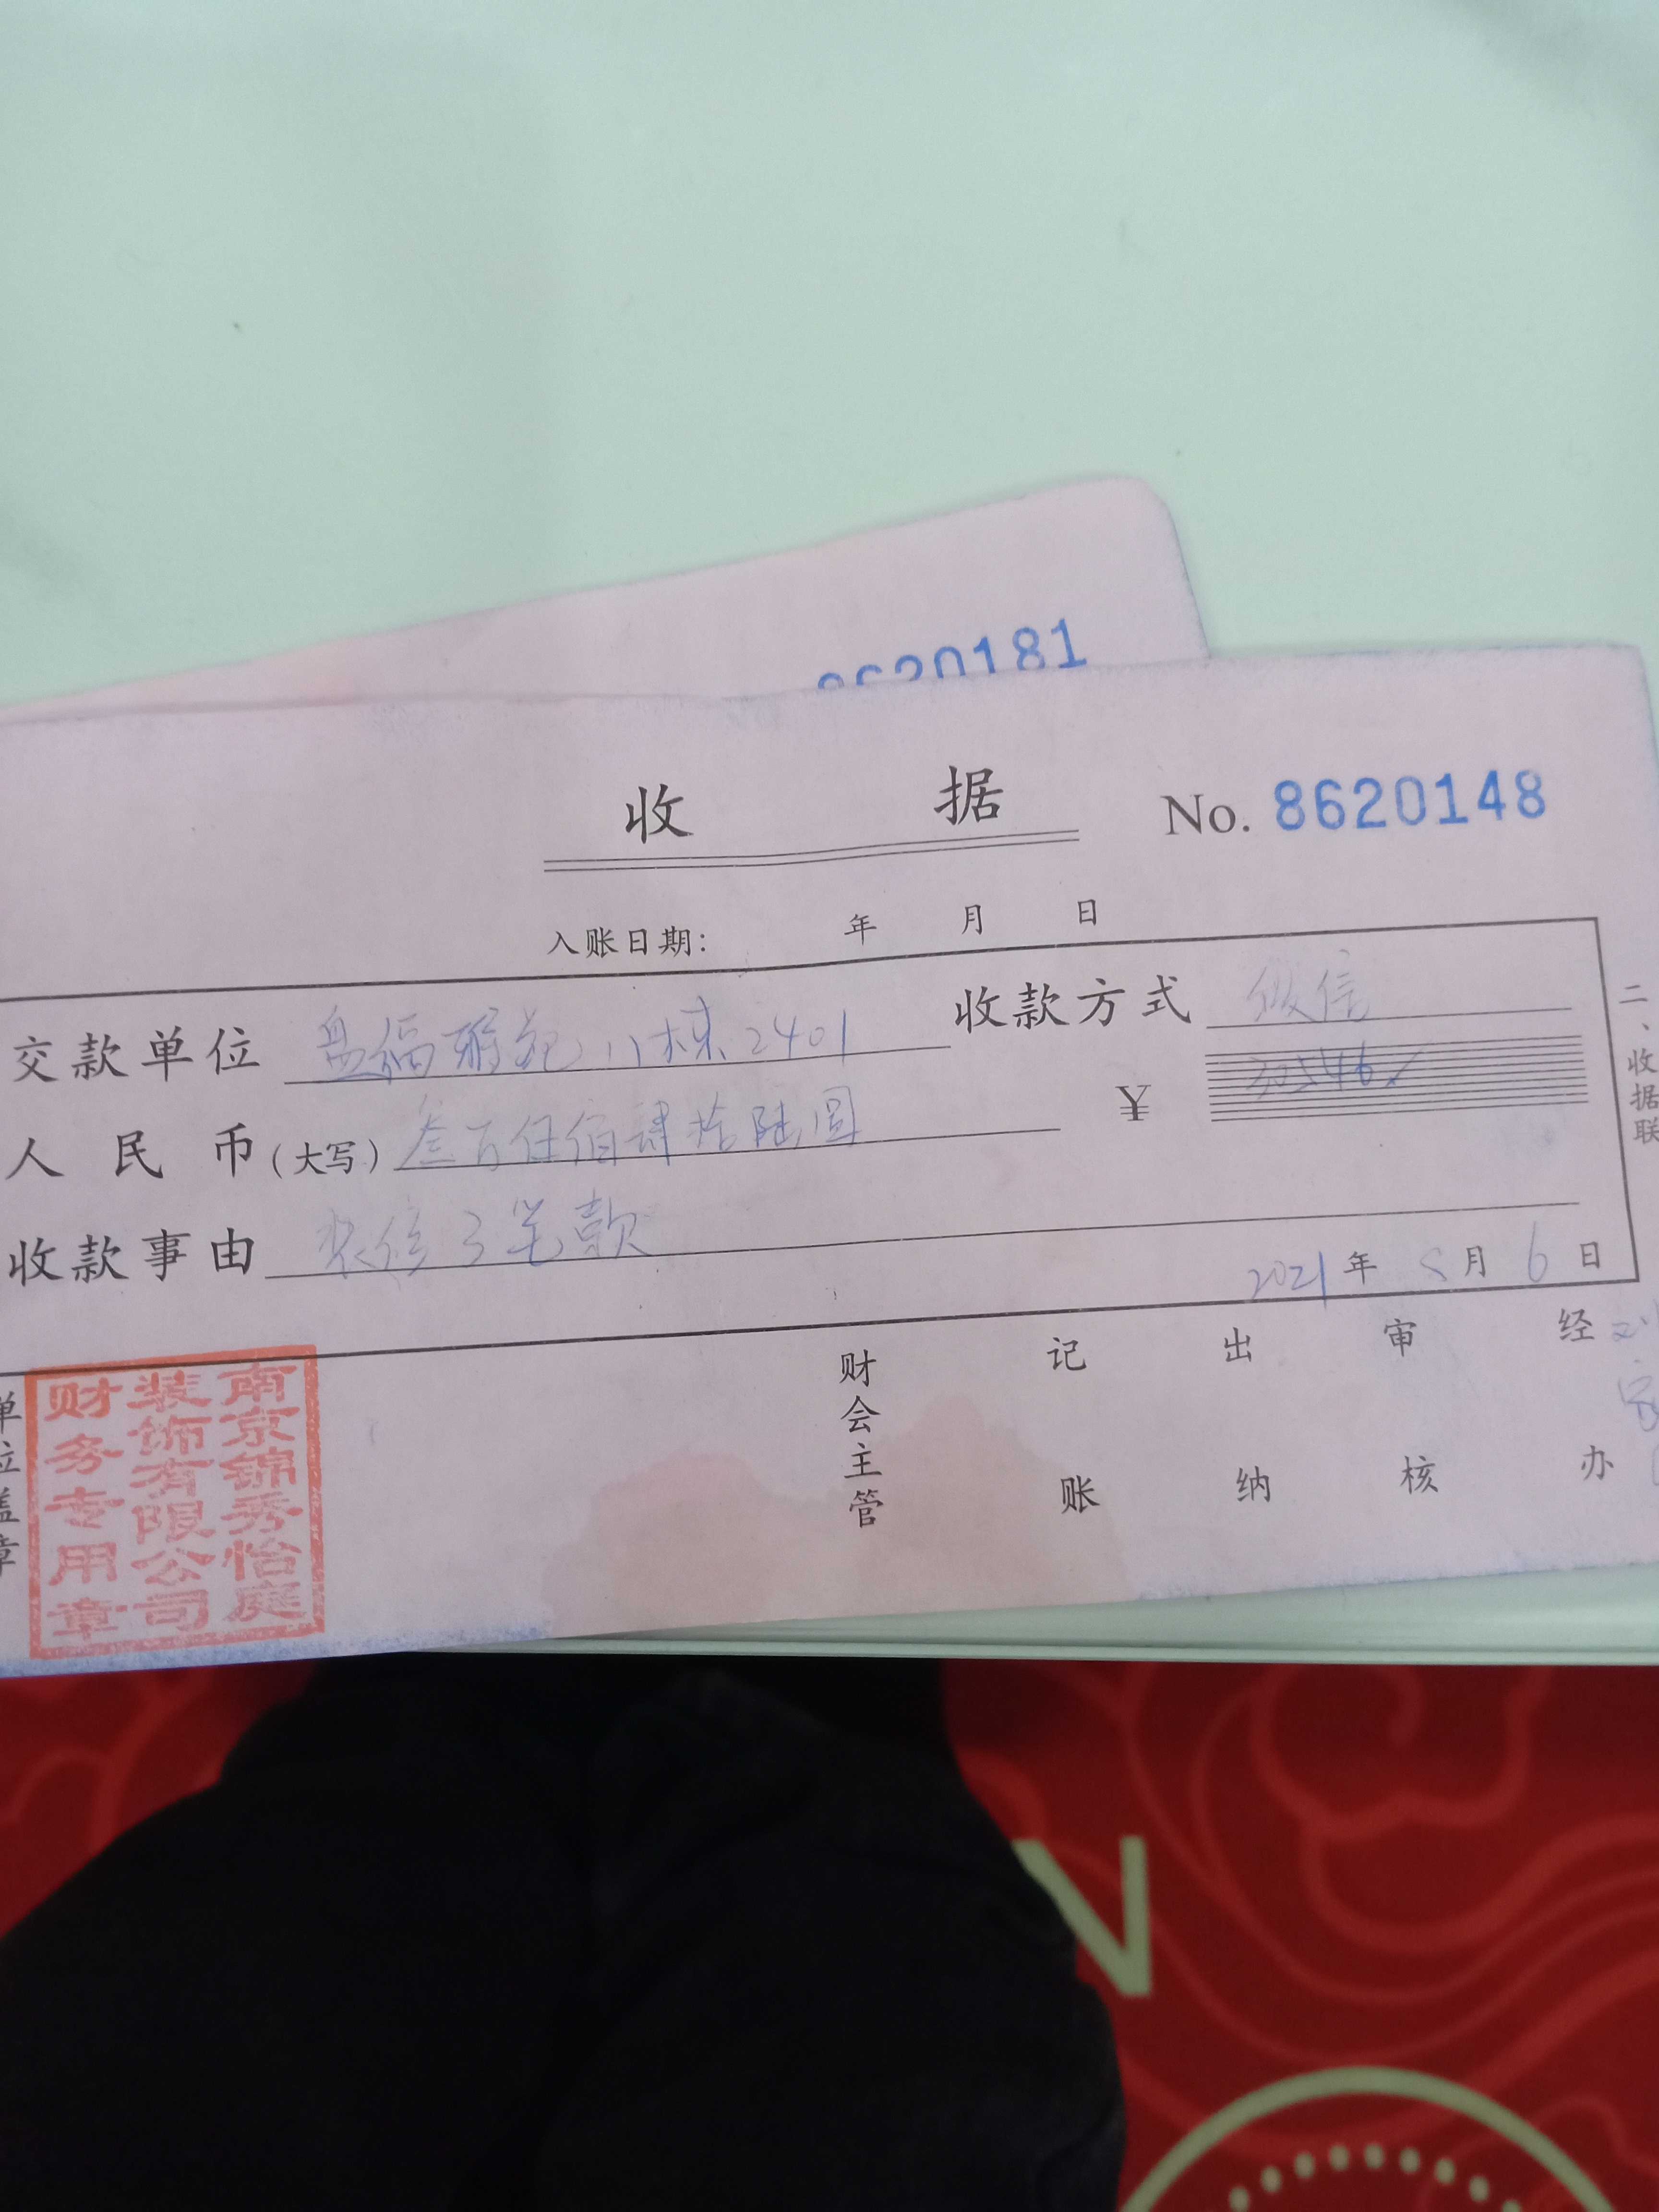 8620181
收 据 No. 8620148
入账日期: 年 月 日
交款单位 盘福雅苑11栋2401 收款方式 微信
人民币(大写) 叁万伍佰肆拾陆圆 ¥ 30546
收款事由 装修3笔款
2021年 5月 6日
二、收据联
单位盖章
财会主管 记账 出纳 审核 经办
南京锦秀怡庭
装饰有限公司
财务专用章